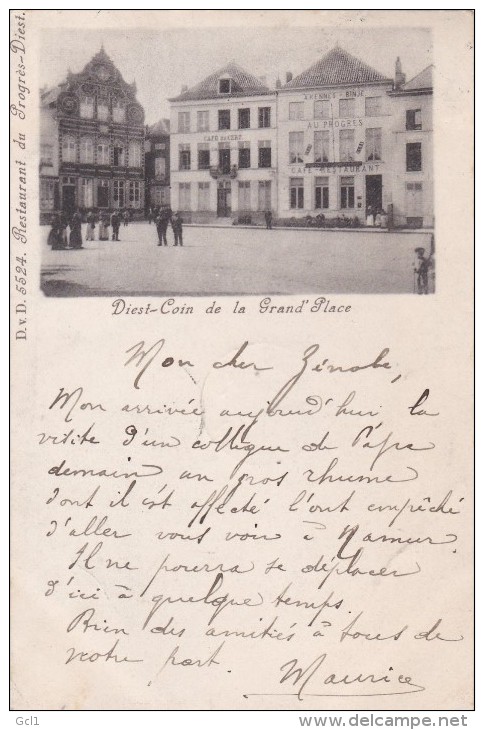 D.v.D. 5524. Restaurant du Progrès-Diest.
CAFÉ DU CERF
ARENNES - BINJÉ
AU PROGRÈS
CAFÉ RESTAURANT
Diest-Coin de la Grand' Place
Mon cher Zénobe,
Mon arrivée aujourd'hui la
visite d'un collègue de Papa
demain un gros rhume
dont il est affecté l'ont empêché
d'aller vous voir à Namur.
Il ne pourra se déplacer
d'ici à quelque temps.
Bien des amitiés à tous de
votre part.
Maurice
Gcl1